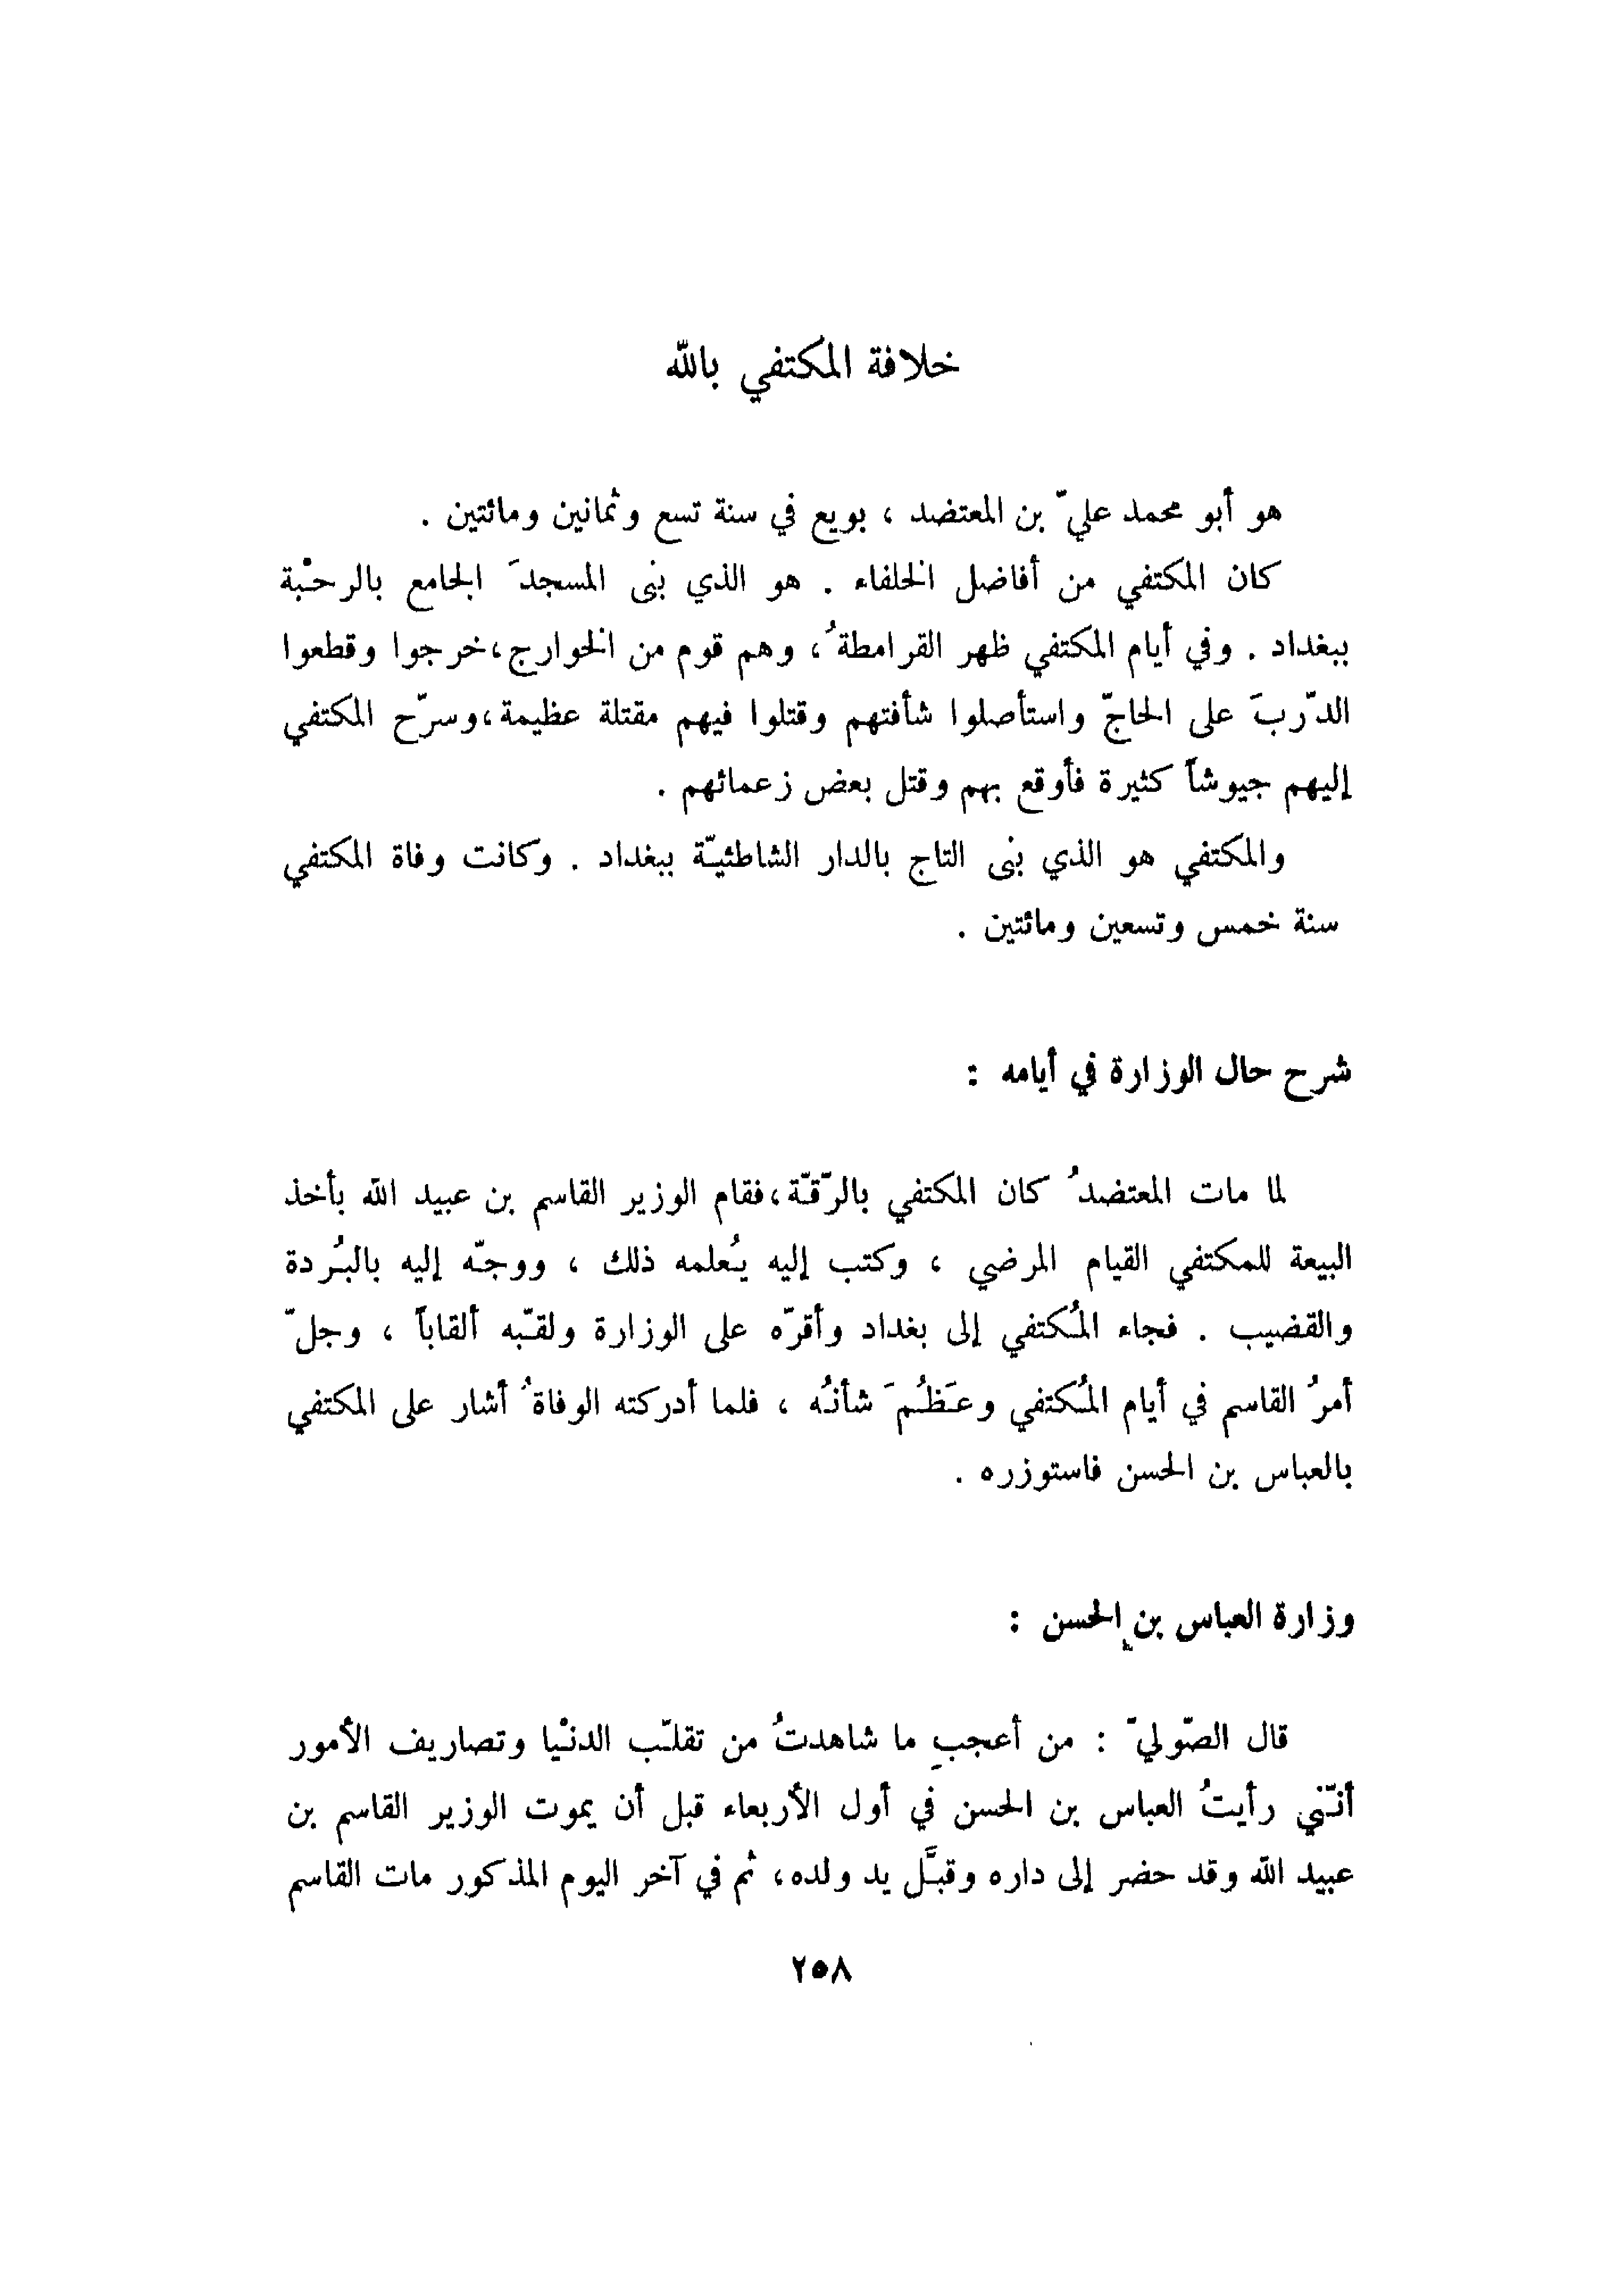 خلافة المكتفي بالله
هو أبو محمد عليّ بن المعتضد ، بويع في سنة تسع وثمانين ومائتين .
كان المكتفي من أفاضل الخلفاء . هو الذي بنى المسجدَ الجامع بالرحْبة
ببغداد . وفي أيام المكتفي ظهر القرامطةُ، وهم قوم من الخوارج،خرجوا وقطعوا
الدّربَ على الحاجّ واستأصلوا شأفتهم وقتلوا فيهم مقتلة عظيمة،وسرّح المكتفي
إليهم جيوشاً كثيرة فأوقع بهم وقتل بعض زعمائهم .
والمكتفي هو الذي بنى التاج بالدار الشاطئيّة ببغداد . وكانت وفاة المكتفي
سنة خمس وتسعين ومائتين .
شرح حال الوزارة في أيامه :
لما مات المعتضدُ كان المكتفي بالرّقّة،فقام الوزير القاسم بن عبيد الله بأخذ
البيعة للمكتفي القيام المرضي ، وكتب إليه يُعلمه ذلك ، ووجّه إليه بالبُردة
والقضيب . فجاء المُكتفي إلى بغداد وأقرّه على الوزارة ولقّبه ألقاباً ، وجلّ
أمرُ القاسم في أيام المُكتفي وعَظُمَ شأنُه ، فلما أدركته الوفاةُ أشار على المكتفي
بالعباس بن الحسن فاستوزره .
وزارة العباس بن الحسن :
قال الصّوليّ : من أعجبِ ما شاهدتُ من تقلّب الدنْيا وتصاريف الأمور
أنّني رأيتُ العباس بن الحسن في أول الأربعاء قبل أن يموت الوزير القاسم بن
عبيد الله وقد حضر إلى داره وقبَّل يد ولده، ثم في آخر اليوم المذكور مات القاسم
٢٥٨